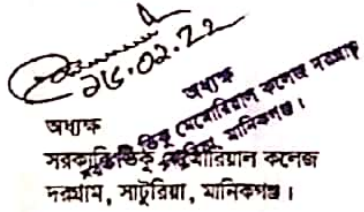 ২৮.০২.২২
অধ্যক্ষ
মেমোরিয়াল কলেজ দরগ্রাম
মানিকগঞ্জ।
অধ্যক্ষ
সরকারি ভিকু মেমোরিয়াল কলেজ
দরগ্রাম, সাটুরিয়া, মানিকগঞ্জ।